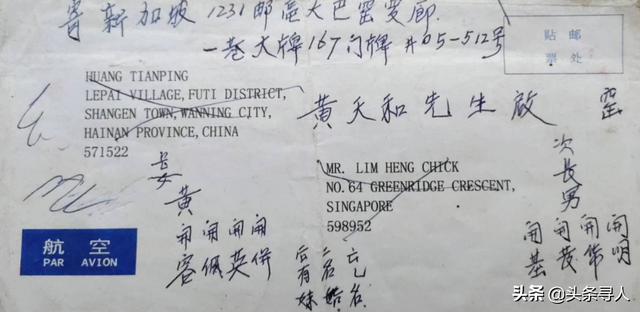 寄新加坡1231邮区大巴窑
一巷大牌167门牌#05-512号
贴 邮
票 处
HUANG TIANPING
LEPAI VILLAGE, FUTI DISTRICT,
SHANGEN TOWN, WANNING CITY,
HAINAN PROVINCE, CHINA
571522
黄天和先生啟
MR. LIM HENG CHICK
NO. 64 GREENRIDGE CRESCENT,
SINGAPORE
598952
黄
航 空
PAR AVION
次長男
開 開 開 開
基 茂 明
開 開 開 開
容 佩 英
妹 名
头条 @头条寻人